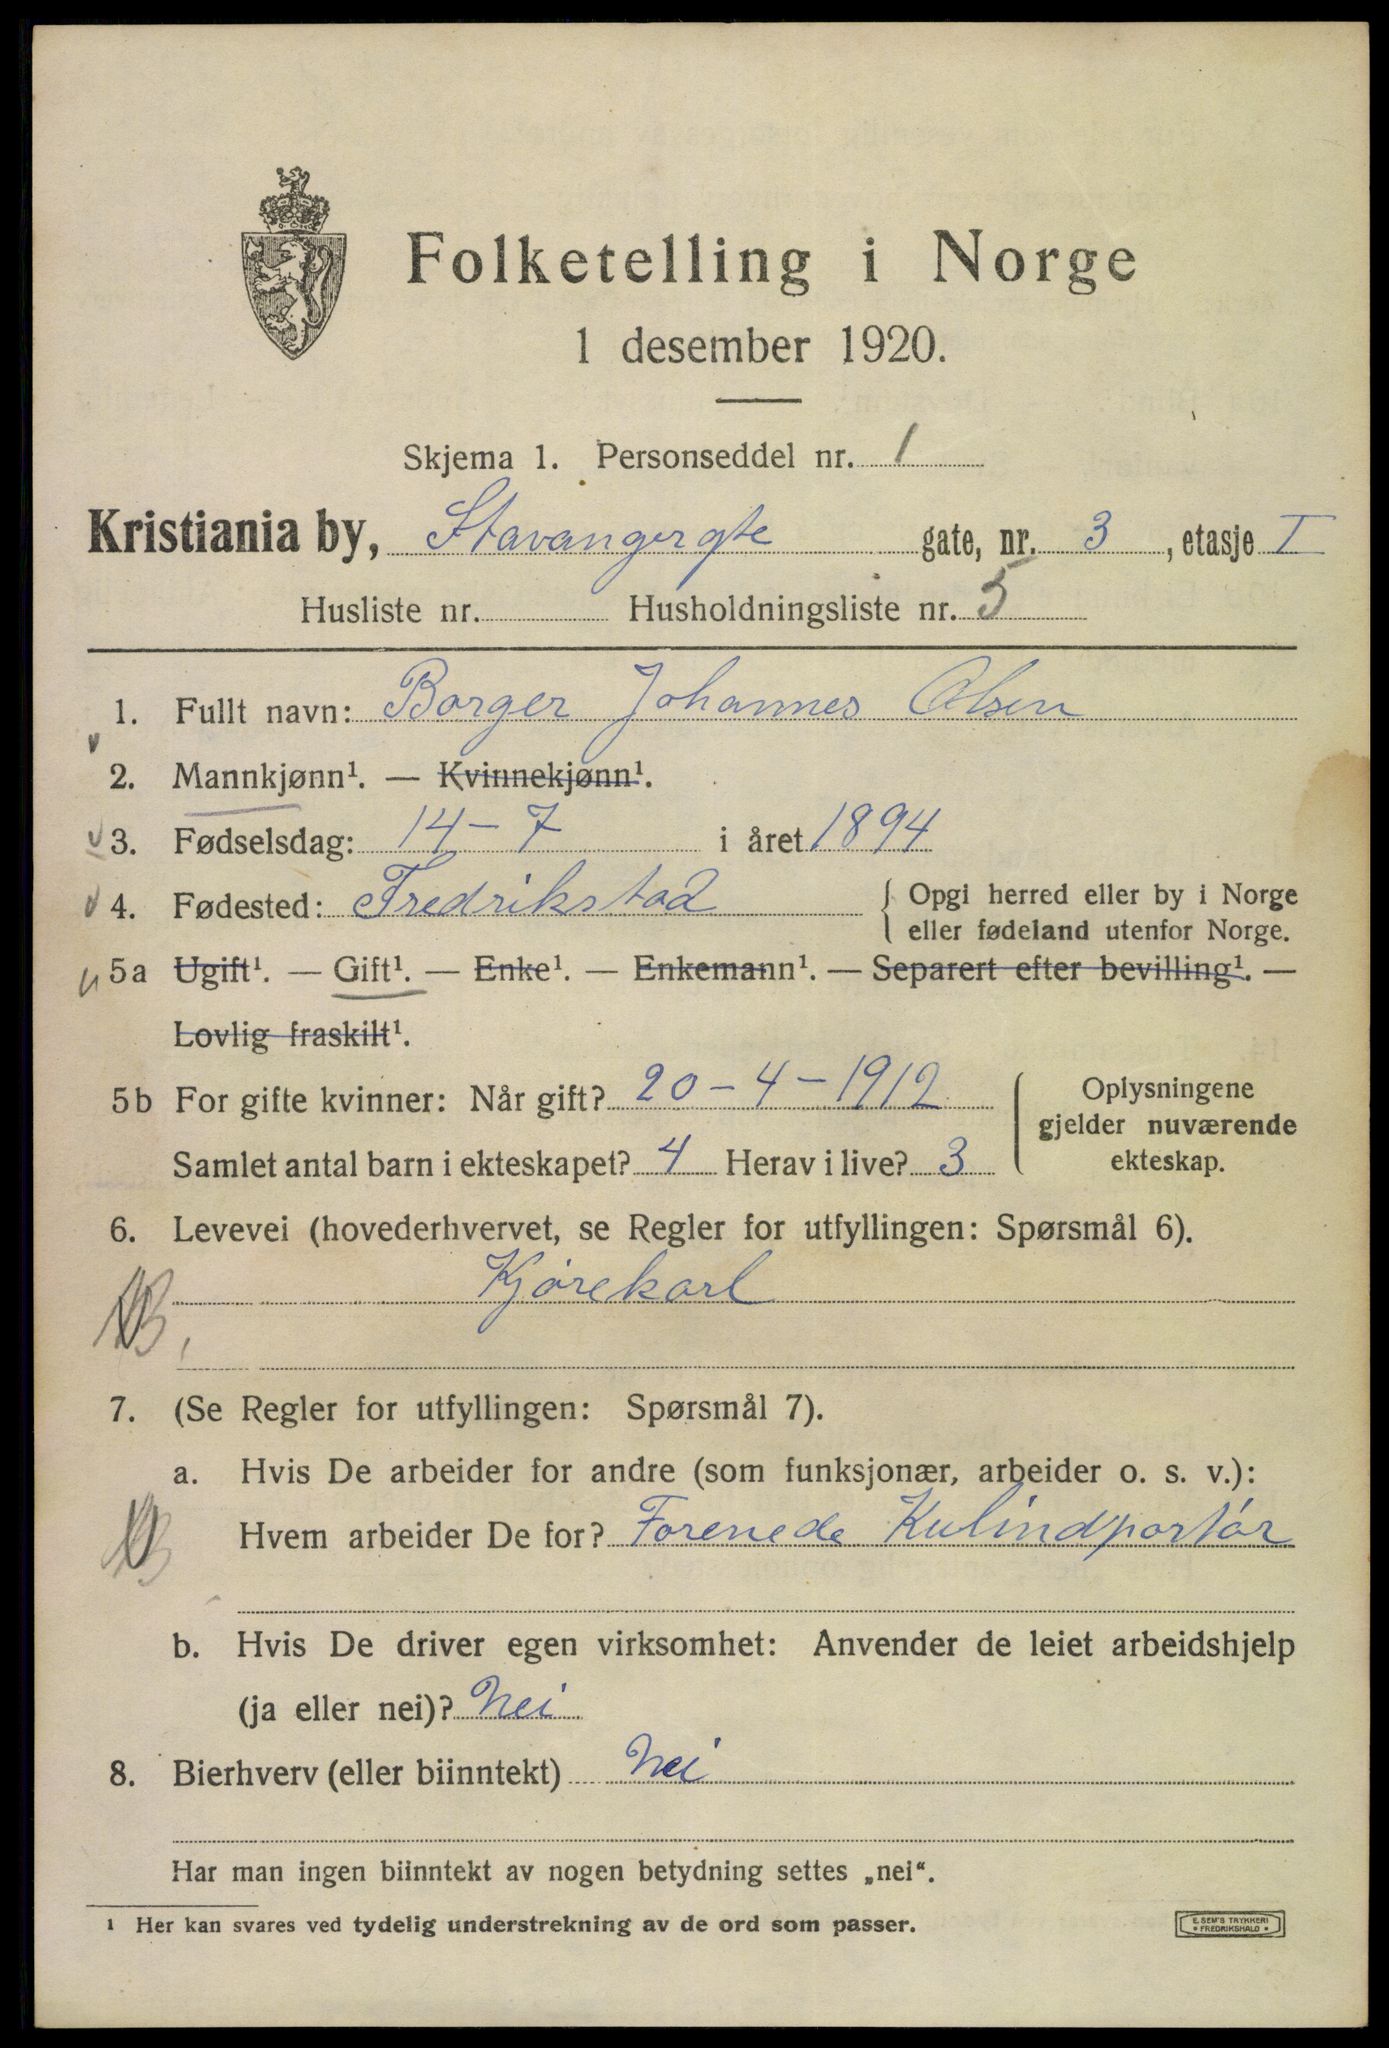 Folketelling i Norge
1 desember 1920.
Skjema 1. Personseddel nr. 1
Kristiania by, Stavangergte gate, nr. 3, etasje I
Husliste nr. Husholdningsliste nr. 5
1. Fullt navn: Borger Johannes Olsen
2. Mannkjønn¹. — Kvinnekjønn¹.
3. Fødselsdag: 14-7 i året 1894
4. Fødested: Fredrikstad { Opgi herred eller by i Norge
eller fødeland utenfor Norge.
5a Ugift¹. — Gift¹. — Enke¹. — Enkemann¹. — Separert efter bevilling¹. —
Lovlig fraskilt¹.
5b For gifte kvinner: Når gift? 20-4-1912
Samlet antal barn i ekteskapet? 4 Herav i live? 3
Oplysningene
gjelder nuværende
ekteskap.
6. Levevei (hovederhvervet, se Regler for utfyllingen: Spørsmål 6).
Kjørekarl
7. (Se Regler for utfyllingen: Spørsmål 7).
a. Hvis De arbeider for andre (som funksjonær, arbeider o. s. v.):
Hvem arbeider De for? Forenede Kulindportør
b. Hvis De driver egen virksomhet: Anvender de leiet arbeidshjelp
(ja eller nei)? Nei
8. Bierhverv (eller biinntekt) Nei
Har man ingen biinntekt av nogen betydning settes „nei“.
¹ Her kan svares ved tydelig understrekning av de ord som passer.
E. SEM'S TRYKKERI
• FREDRIKSHALD •